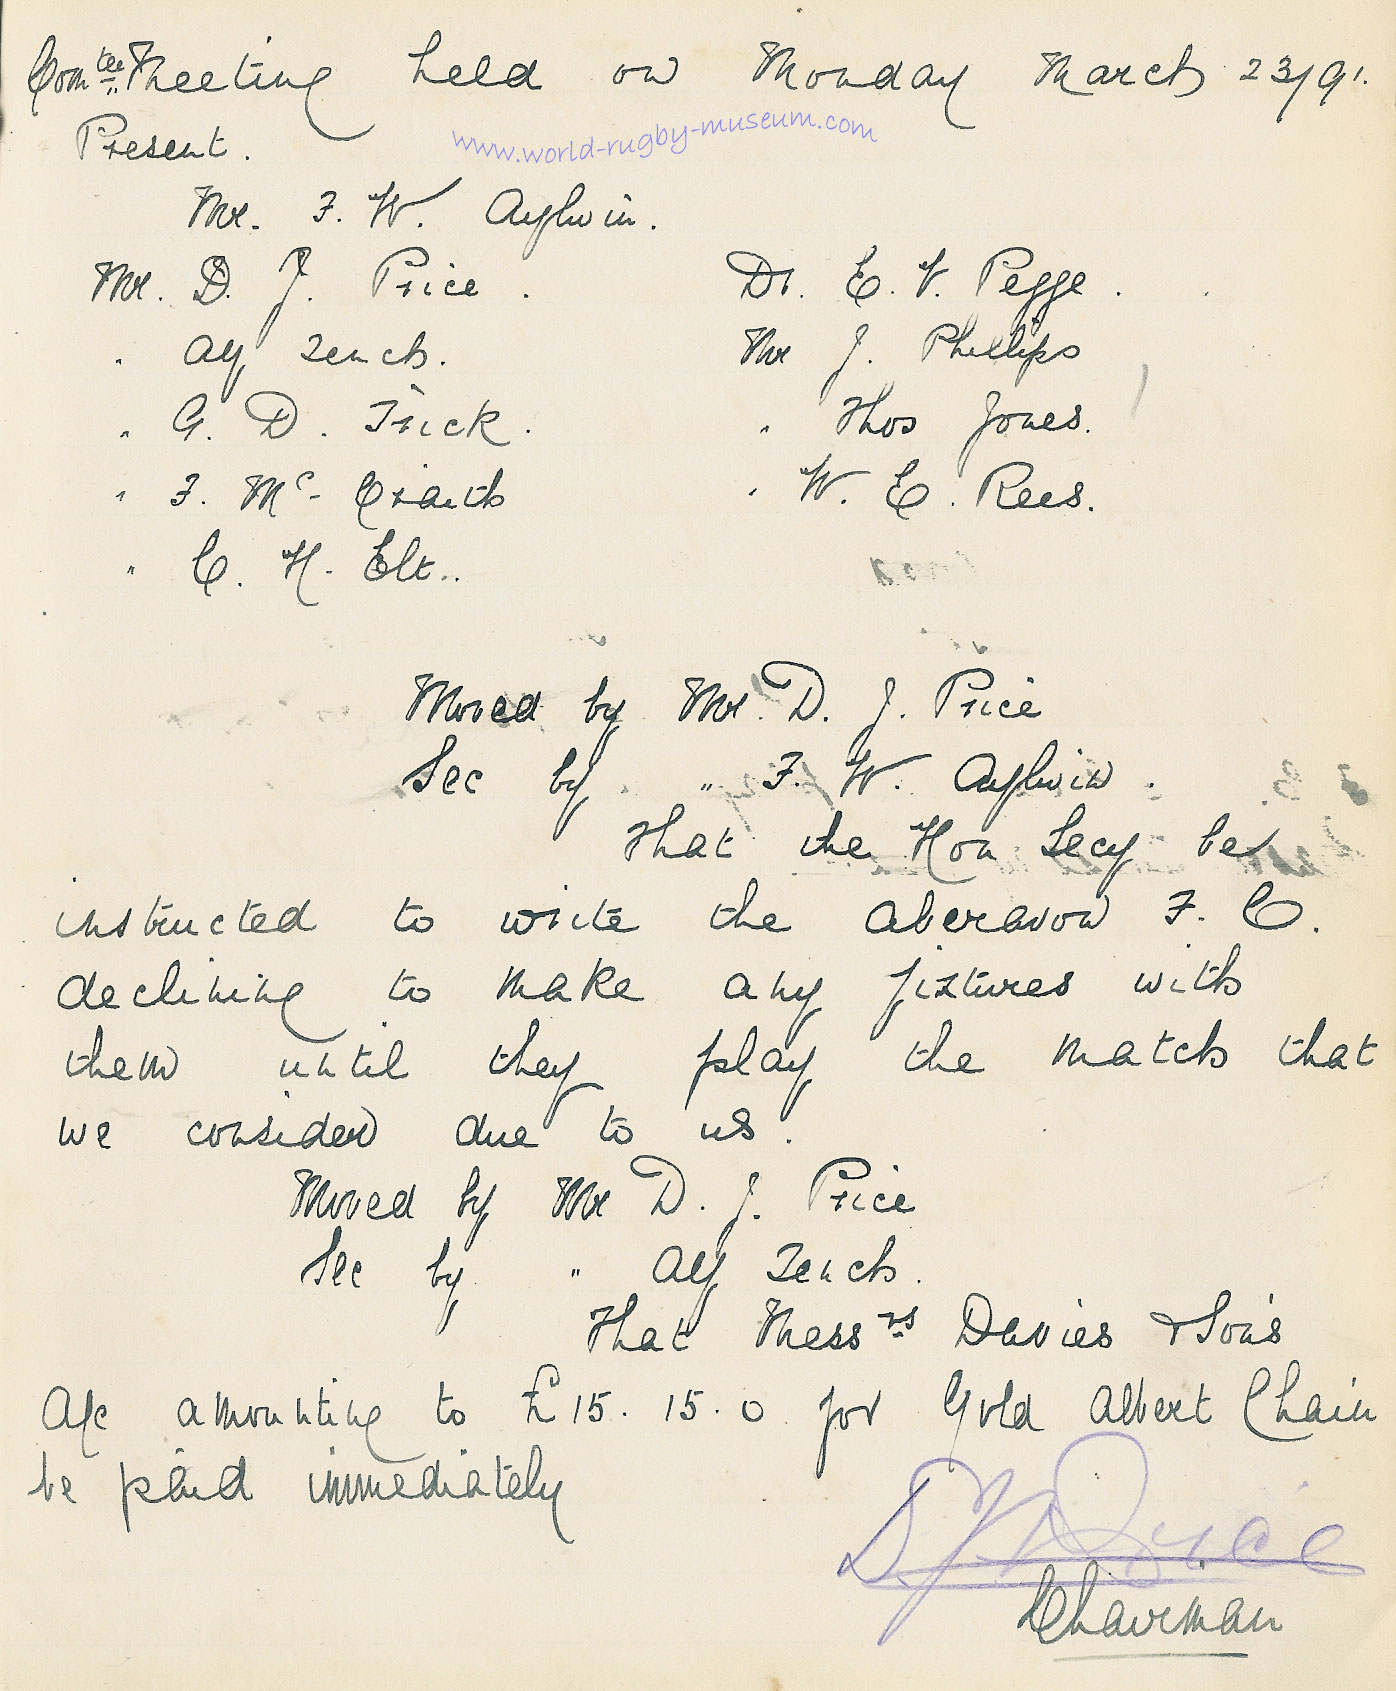 Com^tee Meeting held on Monday March 23/91.
www.world-rugby-museum.com
Present.
Mr. F. W. Aylwin.
Mr. D. J. Price. Dr. E. V. Pegge.
" Alf Tench. Mr J. Phillips
" G. D. Trick. " Thos Jones.
" F. Mc. Craith " W. E. Rees.
" C. H. Elt..
Moved by Mr. D. J. Price
Sec by " F. W. Aylwin.
That the Hon Secy be
instructed to write the Aberavon F. C.
declining to make any fixtures with
them until they play the match that
we consider due to us.
Moved by Mr D. J. Price
Sec by " Alf Tench.
That Mess^rs Davies & Son's
A/c amounting to £15. 15. 0 for Gold Albert Chain
be paid immediately
D J Price
Chairman